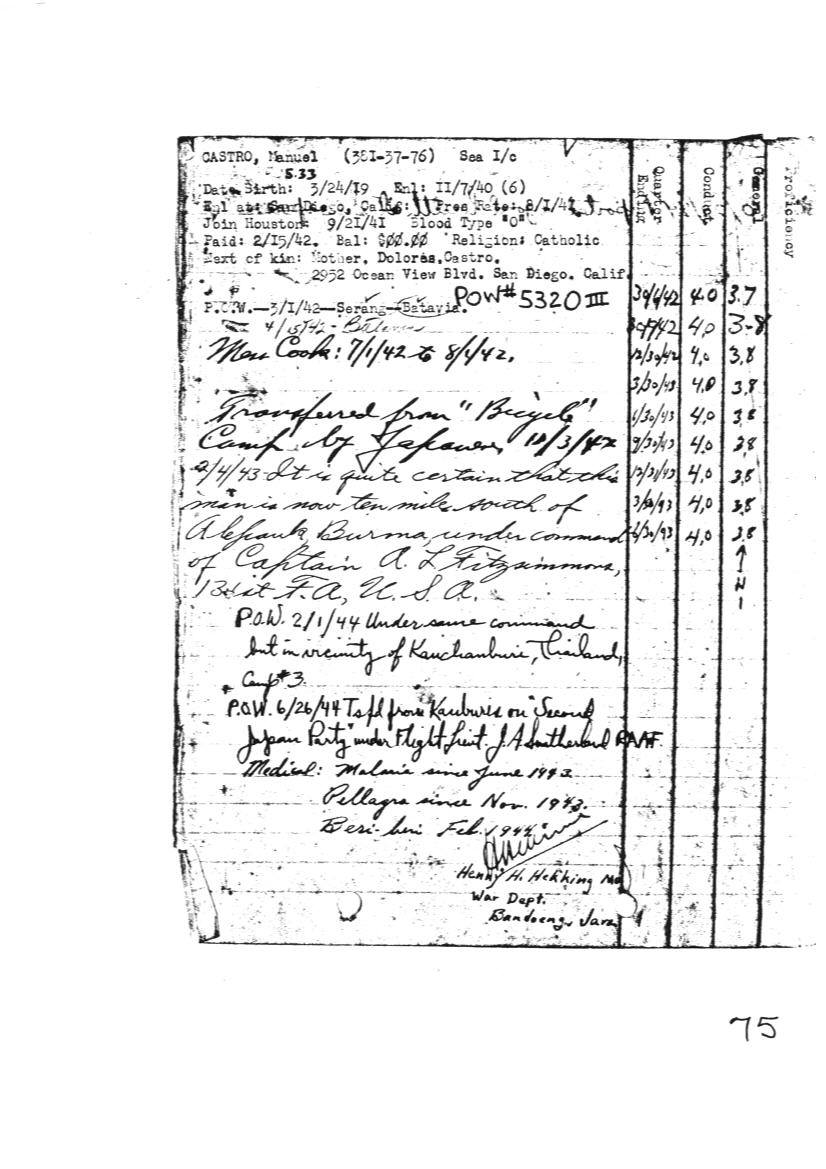 CASTRO, Manuel (38I-37-76) Sea I/c
5.33
Date Birth: 3/24/I9 Enl: II/7/40 (6)
Enl at: San Diego, Calif: Pres Rate: 8/I/4I
Join Houston: 9/2I/4I Blood Type "O"
Paid: 2/I5/42. Bal: $00.00 Religion: Catholic
Next of kin: Mother, Dolores, Castro.
2952 Ocean View Blvd. San Diego. Calif.
P.O.W.—3/I/42—Serang—Batavia. POW# 5320 III
4/15/42 - Batavia
Mess Cook: 7/1/42 to 8/1/42.
Transferred from "Bicycle"
Camp by Japanese 10/3/42
2/4/43 It is quite certain that this
man is now ten miles south of
Burma, under command
of Captain A. L. Fitzsimmons,
131st F.A, U. S. A.
P.O.W. 2/1/44 Under same command
but in vicinity of Kanchanburi, Thailand,
Camp #3.
P.O.W. 6/26/44 Tsfd from Kanburis on "Second
Japan Party" under Flight Lieut. J. A Sutherland RAAF.
Medical: Malaria since June 1943
Pellagra since Nov. 1943.
Beri-beri Feb. 1944.
Henry H. Hekking MD
War Dept.
Bandoeng, Java
Quarter Ending Conduct General Proficiency
4.0 3.7
4.0 3-8
12/30/42 4.0 3.8
3/30/43 4.0 3.8
6/30/43 4.0 3.8
9/30/43 4.0 3.8
12/31/43 4.0 3.8
4.0 3.8
4.0 3.8
75